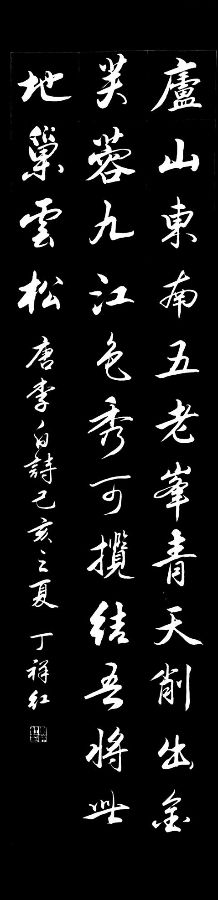 廬山東南五老峯青天削出金
芙蓉九江色秀可攬結吾將此
地巢雲松
唐李白詩己亥之夏 丁祥紅